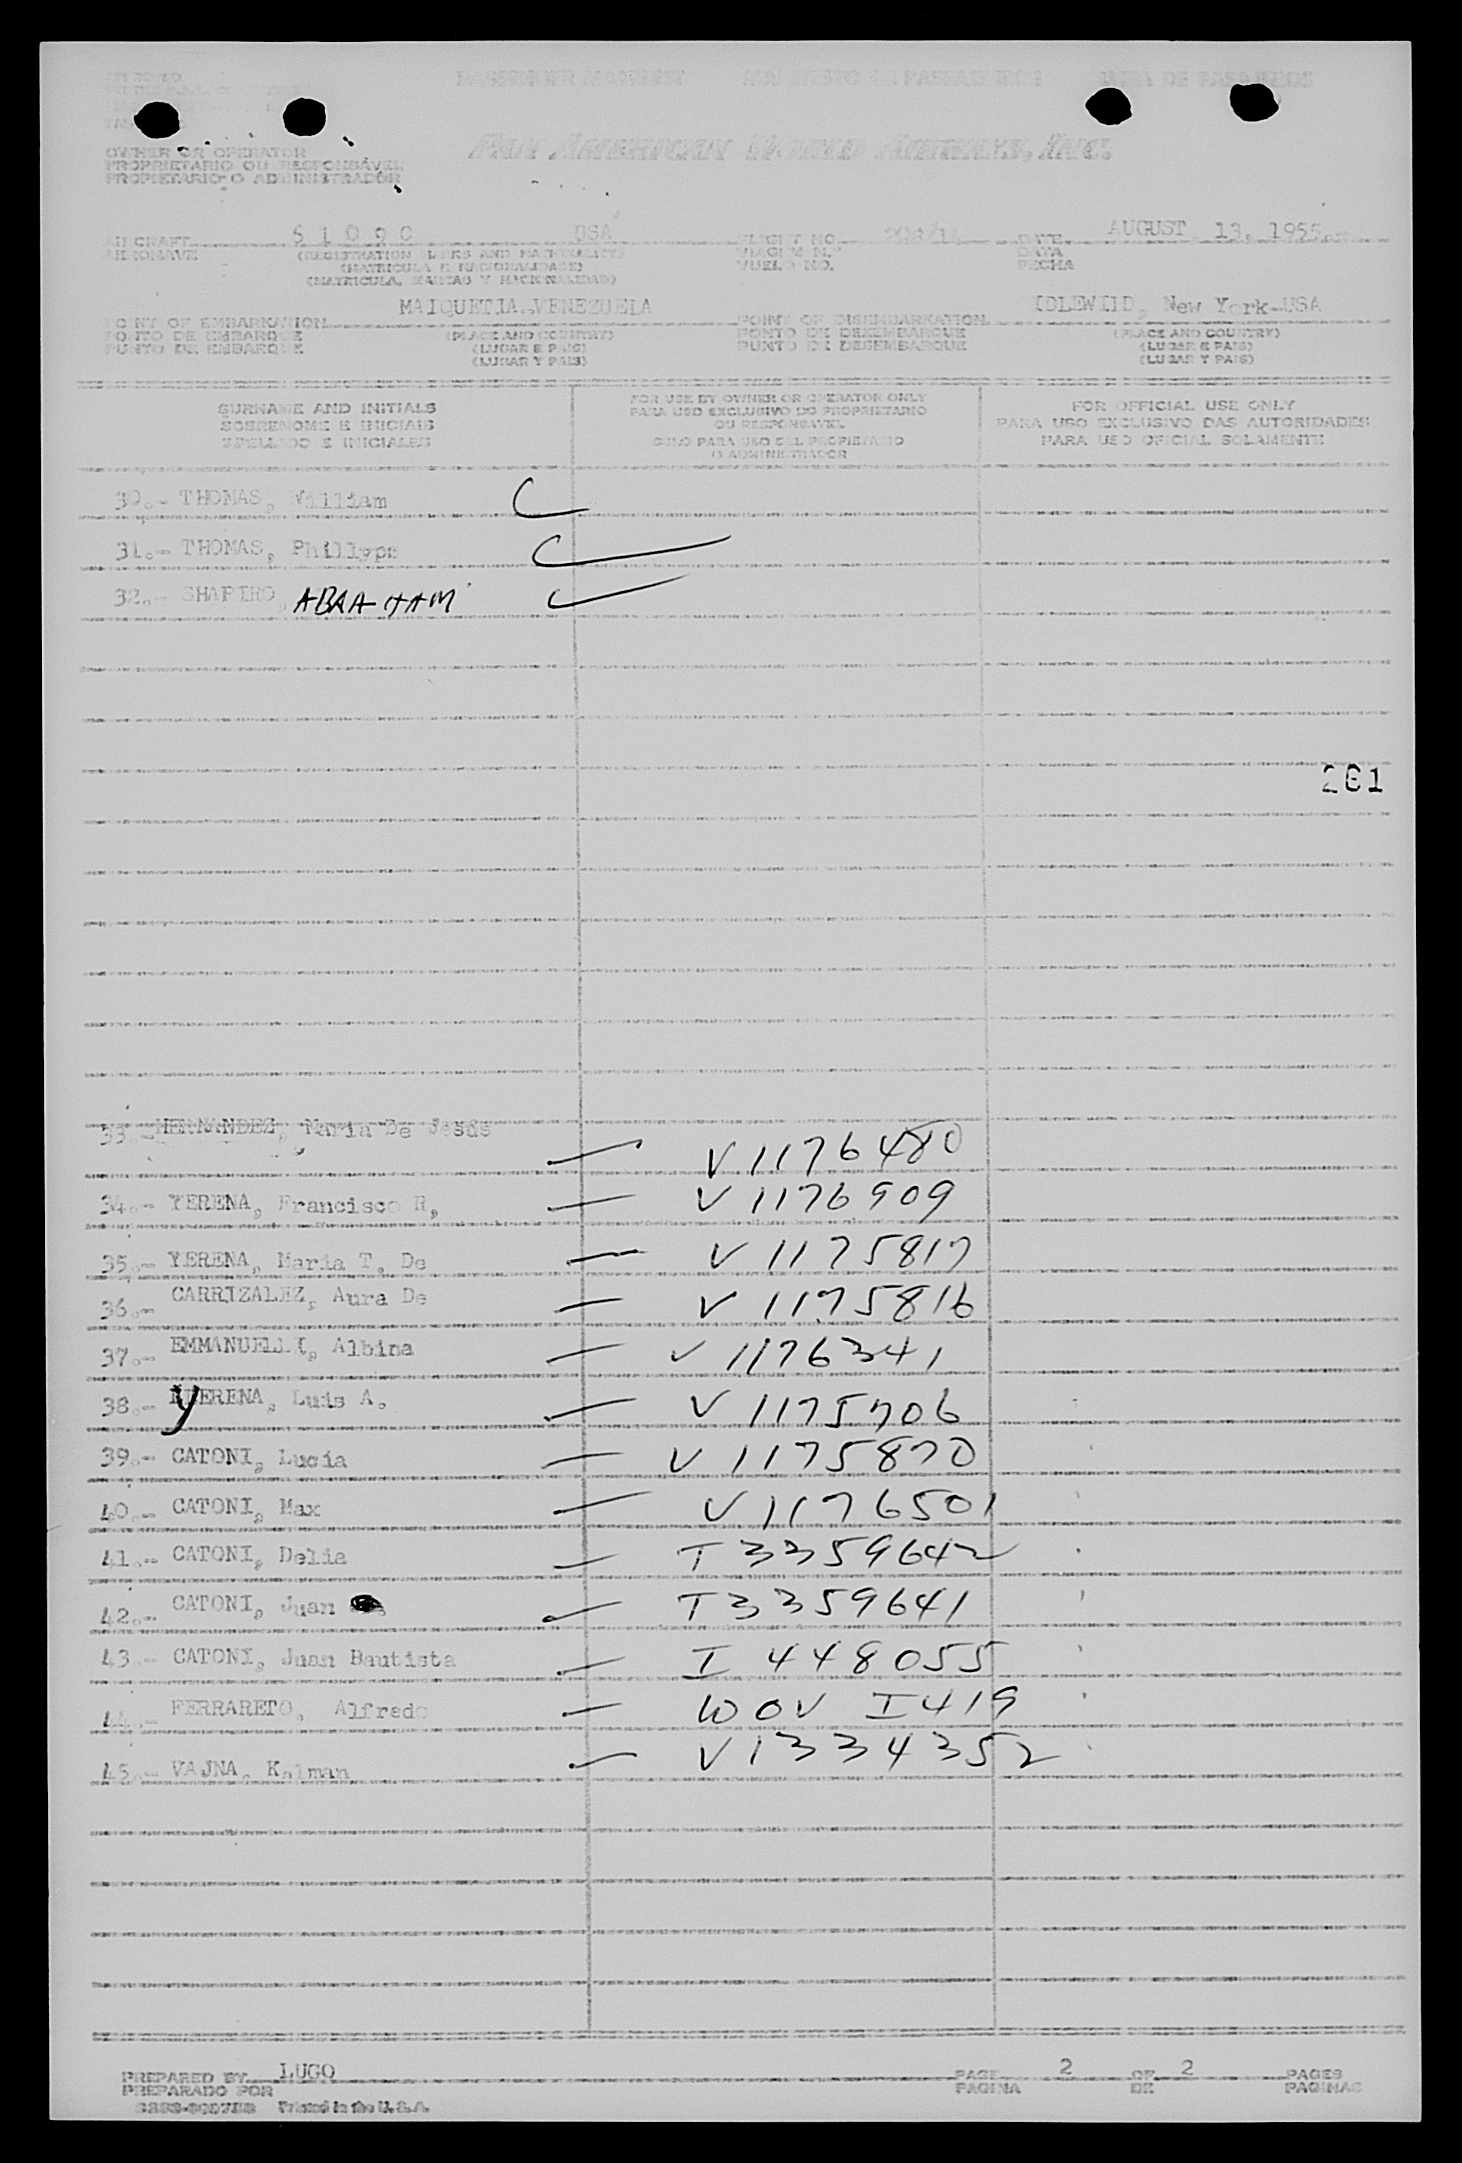 PASSENGER MANIFEST MANIFESTO DE PASSAGEIROS LISTA DE PASAJEROS
OWNER OR OPERATOR
PROPRIETARIO OU RESPONSÁVEL
PROPIETARIO O ADMINISTRADOR
PAN AMERICAN WORLD AIRWAYS, INC.
AIRCRAFT 6 1 0 9 0 USA FLIGHT NO. DATE AUGUST 13, 1955
AERONAVE (REGISTRATION MARKS AND NATIONALITY) VIAGEM N.º DATA
(MATRICULA E NACIONALIDADE) VUELO NO. FECHA
(MATRICULA, MARCAS Y NACIONALIDAD)
POINT OF EMBARKATION MAIQUETIA-VENEZUELA POINT OF DISEMBARKATION IDLEWILD, New York-USA
PONTO DE EMBARQUE (PLACE AND COUNTRY) PONTO DE DESEMBARQUE (PLACE AND COUNTRY)
PUNTO DE EMBARQUE (LUGAR E PAIS) PUNTO DE DESEMBARQUE (LUGAR E PAIS)
(LUGAR Y PAIS) (LUGAR Y PAIS)
SURNAME AND INITIALS
SOBRENOME E INICIAIS
APELLIDO E INICIALES
FOR USE BY OWNER OR OPERATOR ONLY
PARA USO EXCLUSIVO DO PROPRIETARIO
OU RESPONSAVEL
SOLO PARA USO DEL PROPIETARIO
O ADMINISTRADOR
FOR OFFICIAL USE ONLY
PARA USO EXCLUSIVO DAS AUTORIDADES
PARA USO OFICIAL SOLAMENTE
30.- THOMAS, William
31.- THOMAS, Phillyps
32.- SHAPIRO, ABRAHAM
201
33.- HERNANDEZ, Maria De Jesús V 1176480
34.- YERENA, Francisco R, V 1176909
35.- YERENA, Maria T. De V 1175817
36.- CARRIZALEZ, Aura De V 1175816
37.- EMMANUELLI, Albina V 1176341
38.- YERENA, Luis A. V 1175706
39.- CATONI, Lucía V 1175870
40.- CATONI, Max V 1176501
41.- CATONI, Delia T 3359642
42.- CATONI, Juan T3359641
43.- CATONI, Juan Bautista I 448055
44.- FERRARETO, Alfredo WOV I419
45.- VAJNA, Kalman V1334352
PREPARED BY LUGO PAGE 2 OF 2 PAGES
PREPARADO POR PAGINA DE PAGINAS
Printed in the U.S.A.